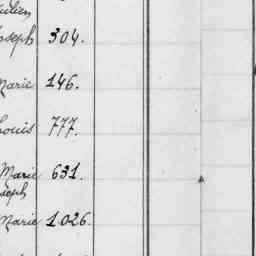 Julien
Joseph 304.
Marie 146.
Louis 777.
Marie 631.
Joseph
Marie 1026.